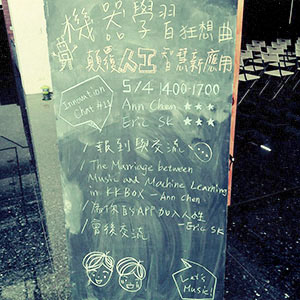 機器學習百狂想曲
顛覆人工智慧新應用
Innovation
Chat #11
5/4 1400-1700
Ann Chen ★★★
Eric SK ★★★
/ 報到與交流
/ The Marriage between
Music and Machine Learning
in KKBOX - Ann Chen
/ 為你的APP加入人性
- Eric SK
/ 會後交流
Let's
Music!